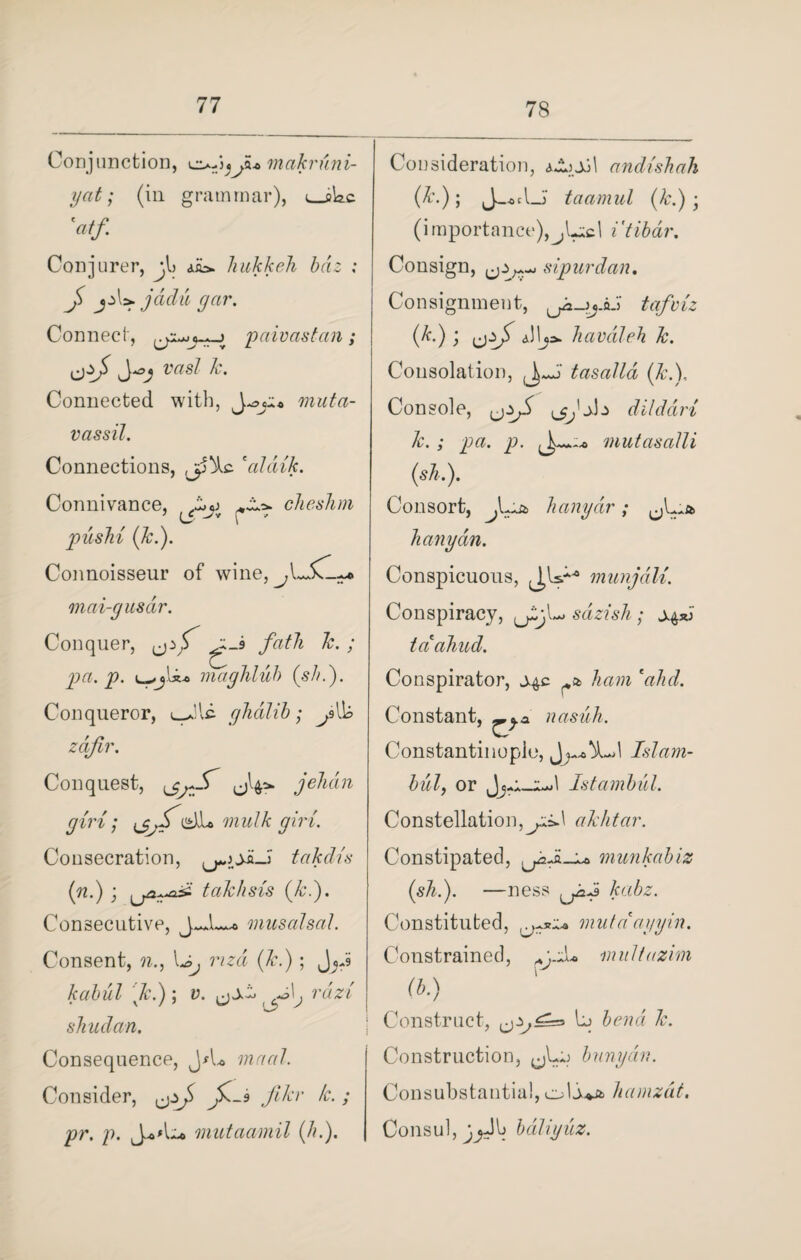 77
Conjunction, مقرونیت makrúni-
yat; (in grammar), عطف
'atf.
Conjurer, حقه باز hukkeh báz :
جادو گر jádú gar.
Connect, پیوستن paivastan ;
وصل کردن vasl k.
Connected with, متوصل muta-
vassil.
Connections, علائق 'aláik.
Connivance, چشم پوشی cheshm
púshí (k.).
Connoisseur of wine, میگسار
mai-gusár.
Conquer, فتح کردن fath k. ;
pa. p. مغلوب maghlúb (sh.).
Conqueror, غالب ghálib ; ظافر
záfir.
Conquest, جهان گیری jehán
gírí ; ملک گیری mulk gírí.
Consecration, تقدیس takdís
(n.) ; تخصیص takhsís (k.).
Consecutive, مسلسل musalsal.
Consent, n., رضا rizá (k.) ; قبول
kabúl (k.) ; v. راضی شدن rází
shudan.
Consequence, مآل maal.
Consider, فکر کردن fikr k. ;
pr. p. متأمل mutaamil (h.).
78
Consideration, اندیشه andíshah
(k.) ; تأمل taamul (k.) ;
(importance), اعتبار i'tibár.
Consign, سپردن sipurdan.
Consignment, تفویض tafvíz
(k.) ; حواله کردن haváleh k.
Consolation, تسلی tasallá (k.).
Console, دلداری کردن dildárí
k. ; pa. p. متسلی mutasalli
(sh.).
Consort, هنیار hanyár ; هنیان
hanyán.
Conspicuous, منجالی munjálí.
Conspiracy, سازش sázish ; تعهد
ta'ahud.
Conspirator, هم عهد ham 'ahd.
Constant, نصوح nasúh.
Constantinople, اسلامبول Islam-
búl, or استنبول Istambúl.
Constellation, اختر akhtar.
Constipated, منقبض munkabiz
(sh.). —ness قبض kabz.
Constituted, متعین muta'ayyin.
Constrained, ملتزم multazim
(b.)
Construct, بنا کردن bená k.
Construction, بنیان bunyán.
Consubstantial, همذات hamzát.
Consul, بالیوز báliyúz.